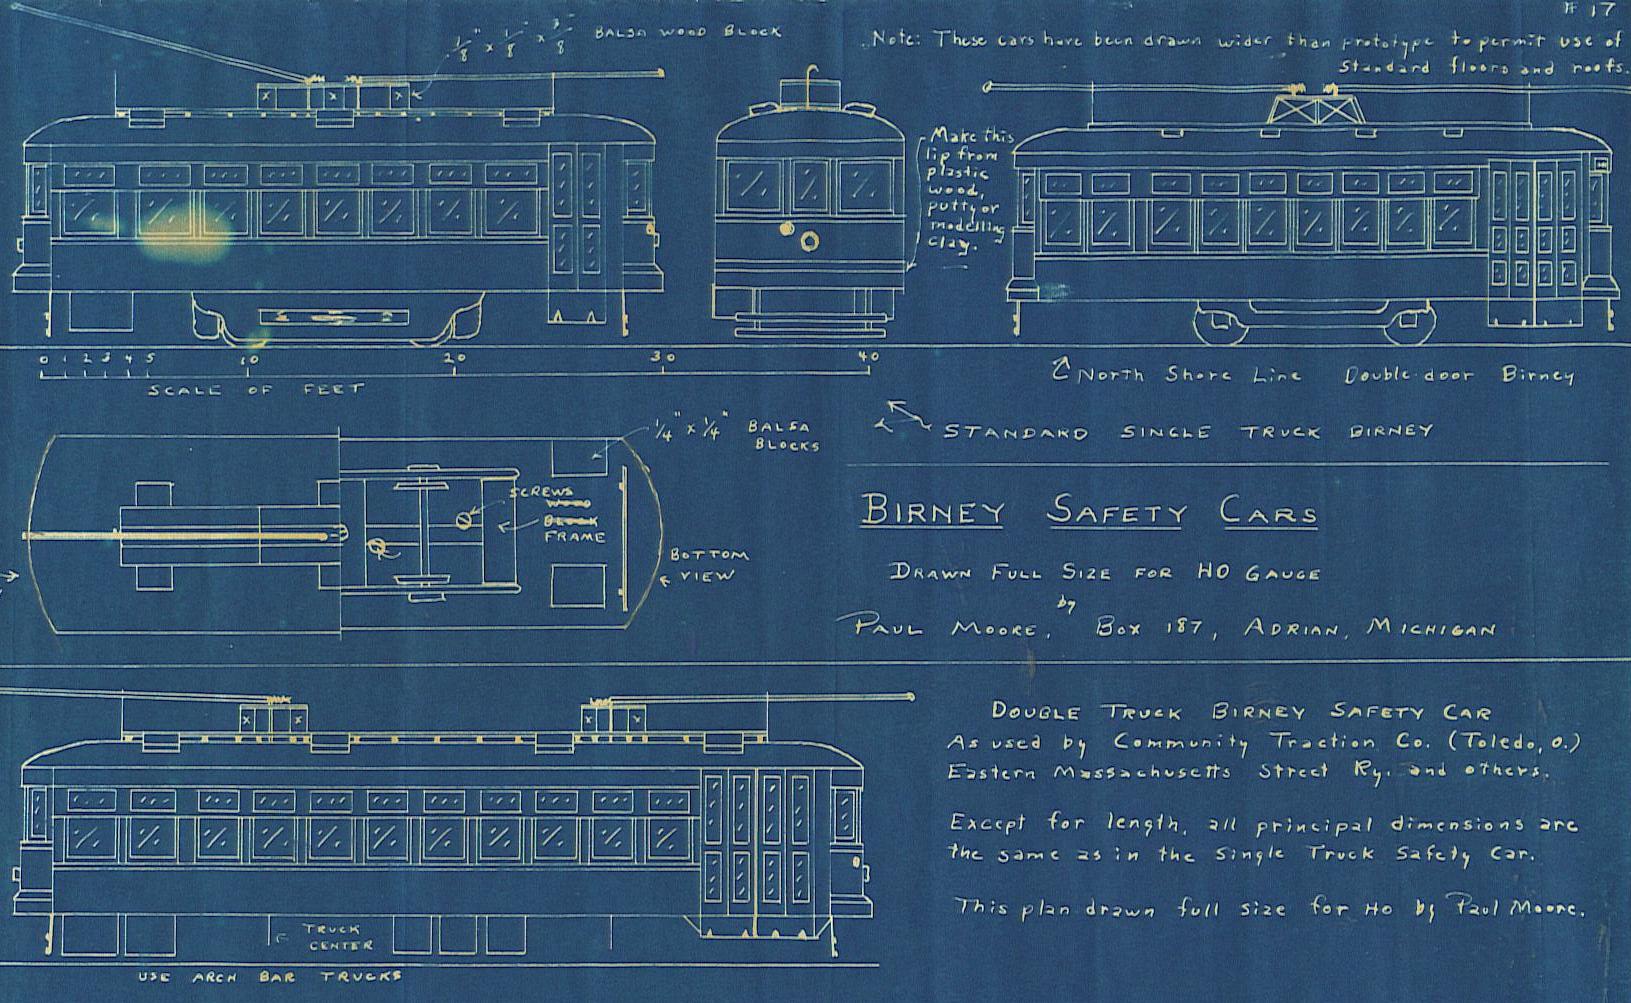 # 17
1/8" x 1/8" x 3/8" BALSA WOOD BLOCK
Note: These cars have been drawn wider than prototype to permit use of
Standard floors and roofs.
Make this
lip from
plastic
wood,
putty or
modelling
clay.
0 1 2 3 4 5 10 20 30 40
SCALE OF FEET
NORTH Shore Line Double-door Birney
STANDARD SINGLE TRUCK BIRNEY
1/4" x 1/4" BALSA
BLOCKS
SCREWS
WOOD
BLOCK
FRAME
BOTTOM
VIEW
BIRNEY SAFETY CARS
DRAWN FULL SIZE FOR HO GAUGE
by
PAUL MOORE, BOX 187, ADRIAN, MICHIGAN
DOUBLE TRUCK BIRNEY SAFETY CAR
As used by Community Traction Co. (Toledo, O.)
Eastern Massachusetts Street Ry. and others.
Except for length, all principal dimensions are
the same as in the Single Truck Safety Car.
This plan drawn full size for HO by Paul Moore.
TRUCK
CENTER
USE ARCH BAR TRUCKS